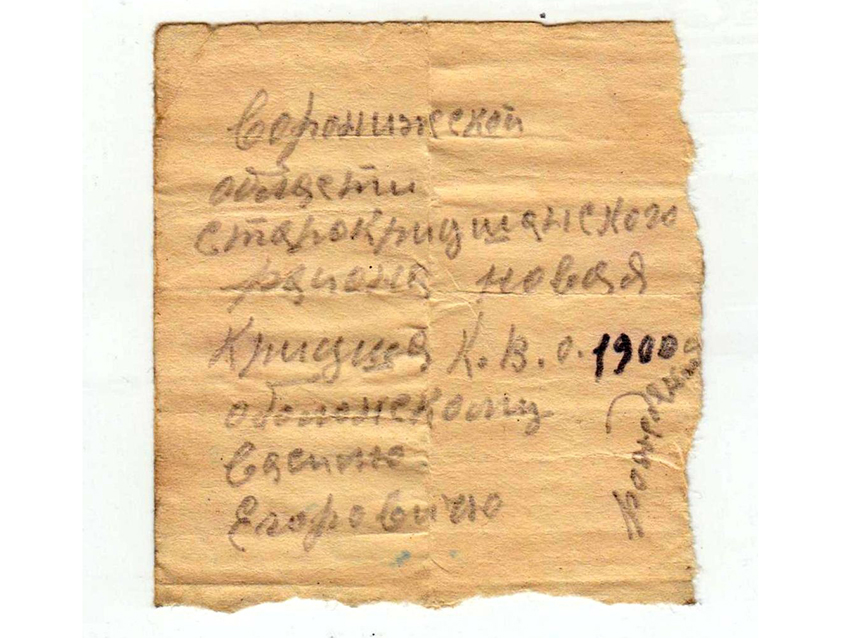 Воронижской
области
старокридушанского
района новая
Кридуша К.В.О. 1900
оболонскому
Василю
Егоровичю